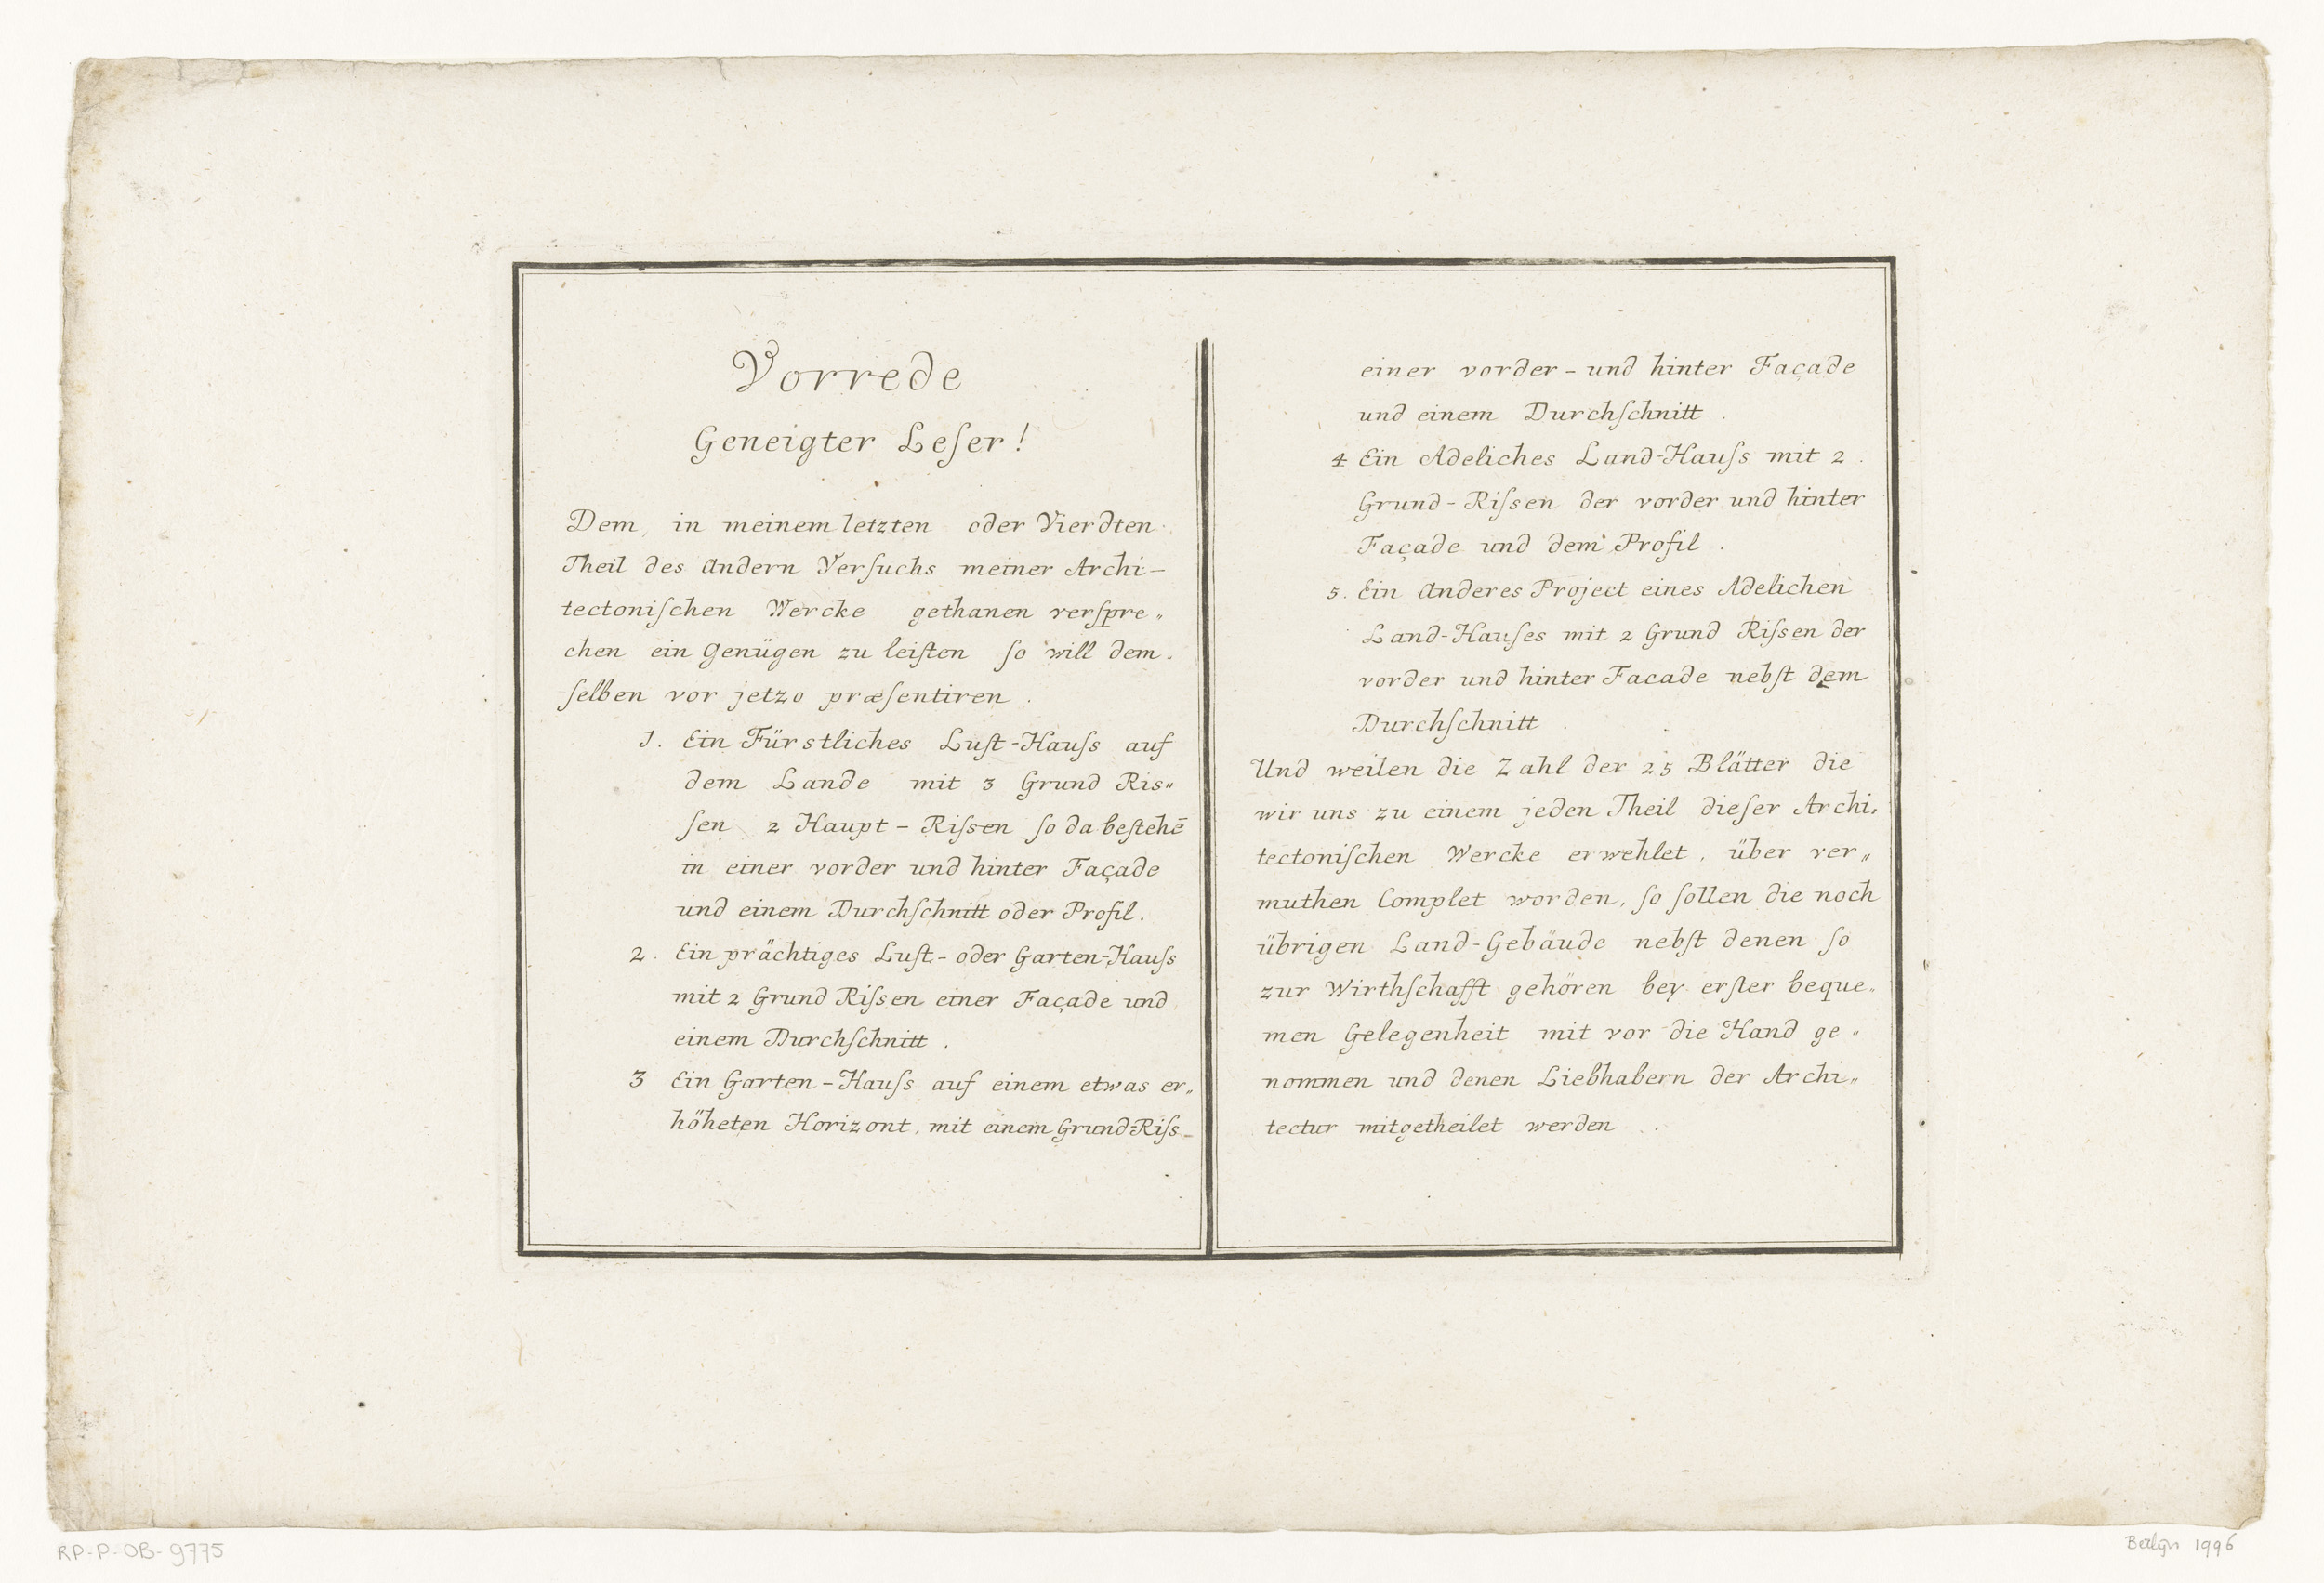 Vorrede
Geneigter Leſer!
Dem, in meinem letzten oder Vierdten
Theil des andern Verſuchs meiner Archi-
tectoniſchen Wercke gethanen verſpre„
chen ein Genügen zu leiſten ſo will dem„
ſelben vor jetzo præſentiren.
1. Ein Fürstliches Luſt-Hauſs auf
dem Lande mit 3 Grund Ris„
ſen 2 Haupt-Riſsen ſo da beſtehē
in einer vorder und hinter Façade
und einem Durchſchnitt oder Profil.
2. Ein prächtiges Luſt- oder Garten-Hauſs
mit 2 Grund Riſsen einer Façade und
einem Durchſchnitt.
3 Ein Garten-Hauſs auf einem etwas er„
höheten Horizont, mit einem Grund-Riſs-
einer vorder- und hinter Façade
und einem Durchſchnitt.
4 Ein Adeliches Land-Hauſs mit 2.
Grund-Riſsen der vorder und hinter
Façade und dem Profil.
5. Ein anderes Project eines Adelichen
Land-Hauſes mit 2 Grund Riſsen der
vorder und hinter Facade nebſt dem
Durchſchnitt.
Und weilen die Zahl der 25 Blätter die
wir uns zu einem jeden Theil dieſer Archi„
tectoniſchen Wercke erwehlet, über ver„
muthen Complet worden, ſo ſollen die noch
übrigen Land-Gebäude nebſt denen ſo
zur Wirthſchafft gehören bey erſter beque„
men Gelegenheit mit vor die Hand ge„
nommen und denen Liebhabern der Archi„
tectur mitgetheilet werden.
RP-P-OB-9775
Berlijn 1996